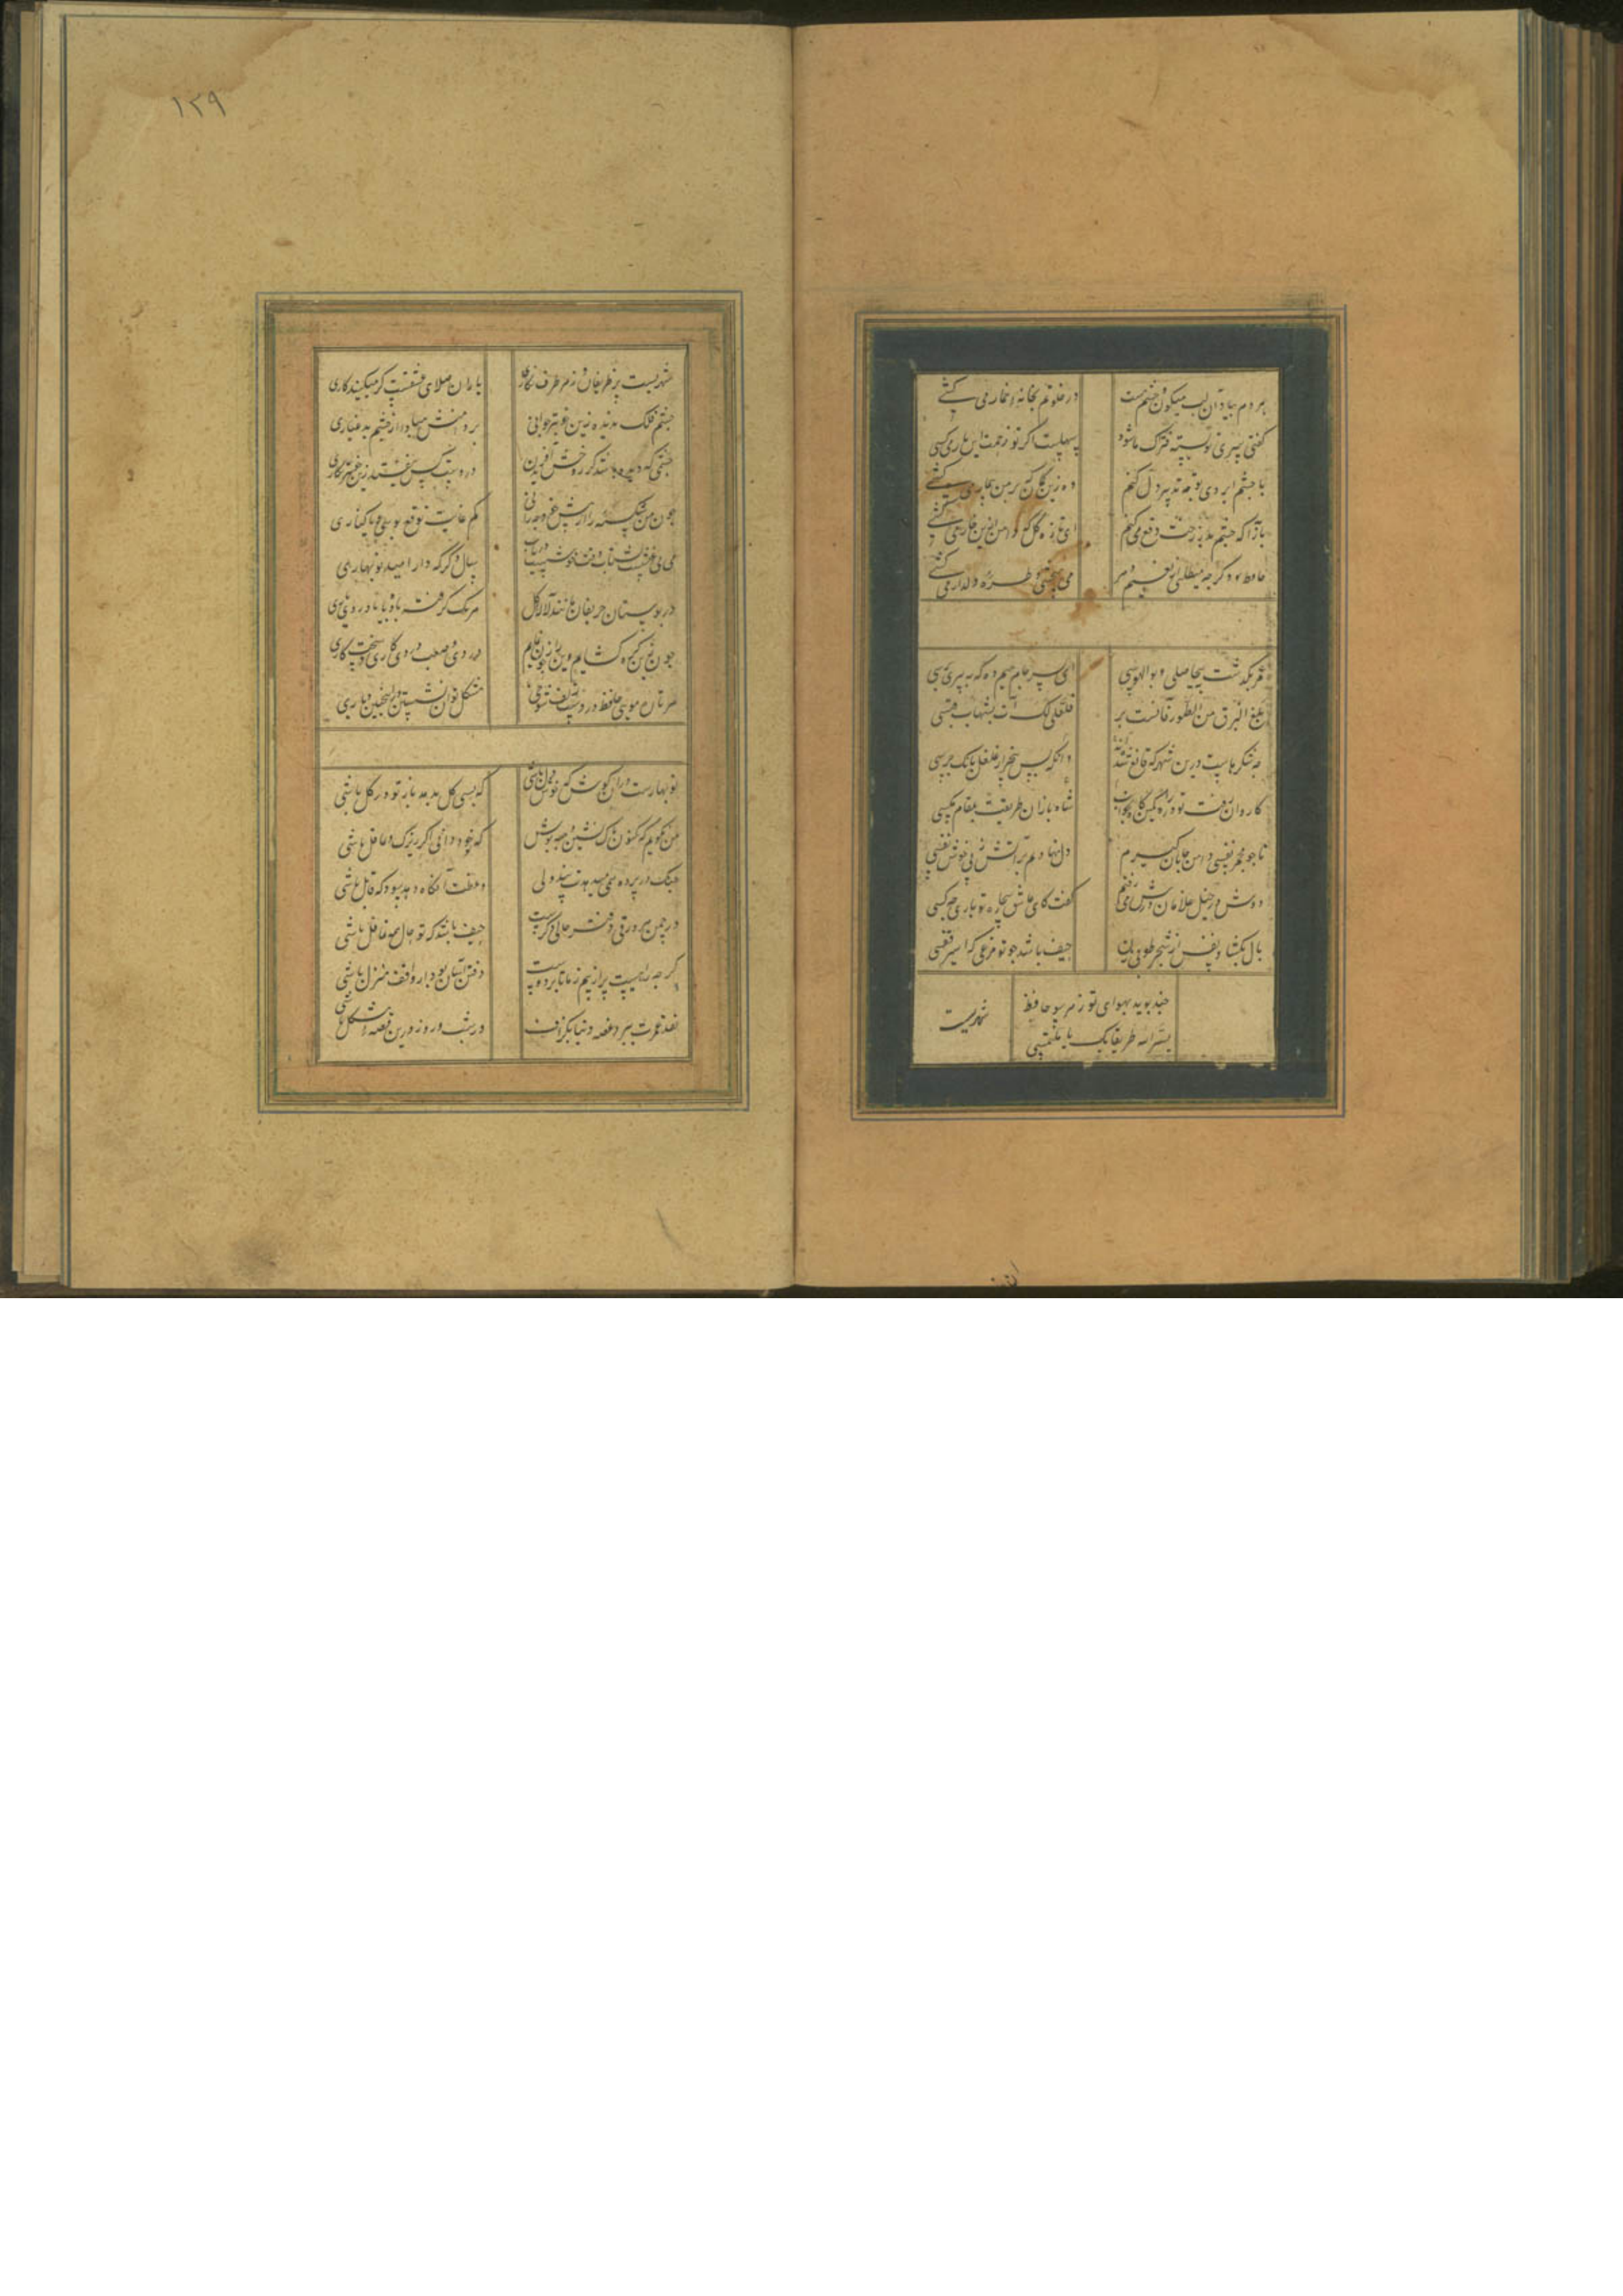 هر دم بیاد آن لب میکون و چشم مست
در خلوتم بخانه خمار می کشی
کفتی سر تو بسته فتراک ما شود
سهلست اکر تو زحمت این بار می کشی
با چشم و ابروی تو چه تدبیر دل کنم
وه زین کمان که بر من بیمار می کشی
بازآ که چشم بد ز رخت دفع می کنم
ای تازه کل که دامن ازین خار می کشی
حافظ دکر چه میطلبی از نعیم دهر
می میچشی و طره دلدار می کشی
عمر بکذشت بیحاصلی و بوالهوسی
ای پسر جام میم ده که به پیری برسی
لمع البرق من الطور و آنست به
فلعلی لک آت بشهاب قبس
چه شکرهاست درین شهر که قانع شده اند
شاه بازان طریقت بمقام مکسی
کاروان رفت و تو در راه کمین کاه و بخواب
وه که بس بیخبر از غلغل بانک جرسی
تا چو مجمر نفسی دامن جانان کیرم
دل نهادیم بر آتش ز پی خوش نفسی
دوش در خیل غلامان درش می رفتم
کفت کای عاشق بیچاره تو باری چه کسی
بال بکشا و صفیر از شجر طوبی زن
حیف باشد چو تو مرغی که اسیر قفسی
چند بوید بهوای تو ز هر سو حافظ
یسر الله طریقا بک یا ملتمسی
شهریست
۱۲۹
شهریست پر ظریفان و ز هر طرف نکاری
یاران صلای عشقست کر میکنید کاری
چشم فلک ندیده زین خوبتر جوانی
در دست کس نیفتد زین خوبتر نکاری
چون من شکسته را از پیش خود چه رانی
کم غایت توقع بوسیست یا کناری
می بی غشست بشتاب وقت خوشست دریاب
سال دکر که دارد امید نو بهاری
در بوستان حریفان مانند لاله و کل
هر یک کرفته جامی بر یاد روی یاری
چون این کره کشایم وین راز چون نمایم
دردی و صعب دردی کاری و سخت کاری
هر تار موی حافظ در دست زلف شوخی
مشکل توان نشستن در اینچنین دیاری
نو بهارست در آن کوش که خوش دل باشی
که بسی کل بدمد باز و تو در کل باشی
من نکویم که کنون با که نشین و چه بنوش
که تو خود دانی اکر زیرک و عاقل باشی
چنک در پرده همی میدهدت پند ولی
وعظت آنکاه دهد سود که قابل باشی
در چمن هر ورقی دفتر حالی دکرست
حیف باشد که ز حال همه غافل باشی
کر چه راهیست پر از بیم ز ما تا بر دوست
رفتن آسان بود ار واقف منزل باشی
نقد عمرت ببرد غصه دنیا بکزاف
کر شب و روز درین قصه مشکل باشی